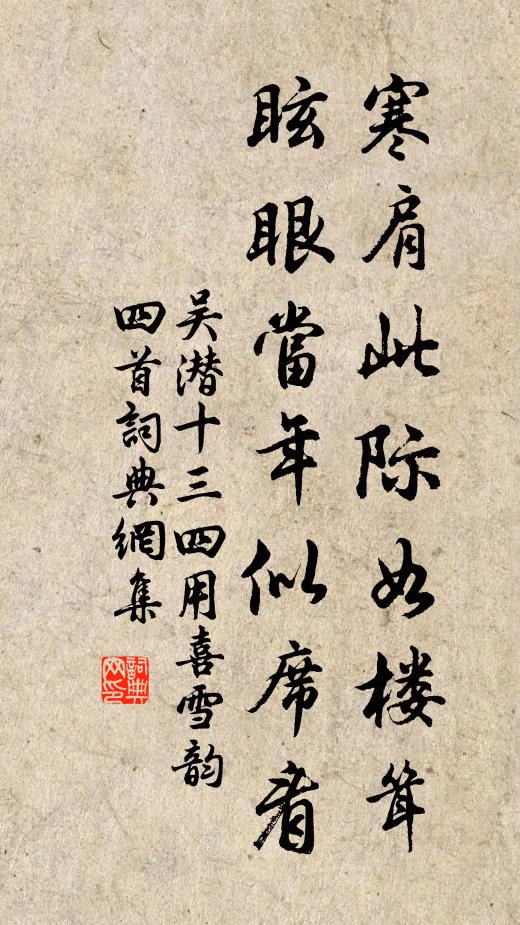 寒肩此际如楼耸
眩眼當年似席看
吴潜十三四用喜雪韵
四首詞典網集
詞典网印